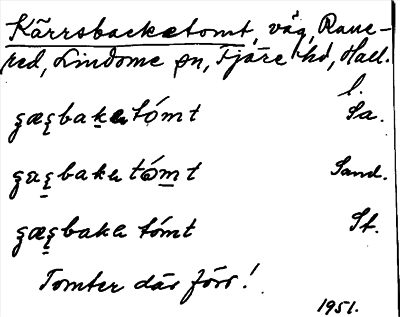 Kärrsbacketomt, väg, Ranered, Lindome sn, Fjäre hd, Hall.
l.
bakatómt Sa.
baka tómt Sand.
baka tómt St.
Tomter där förr!
1951.